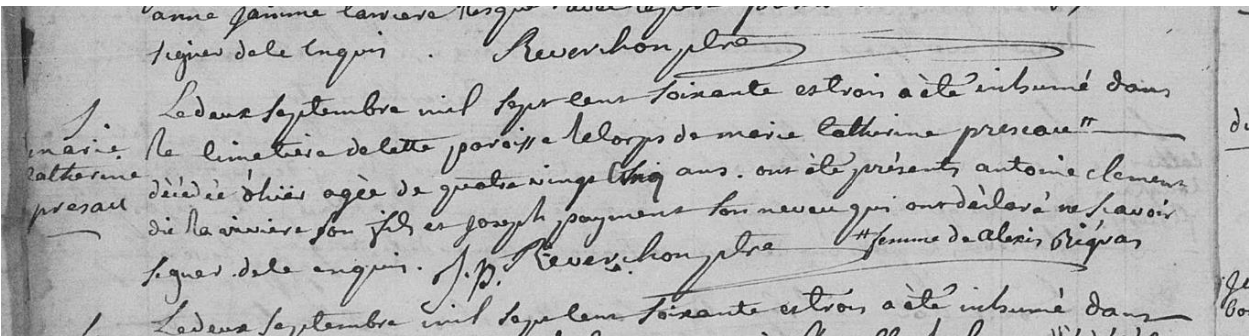 anne jamme
signer dele Enquis. Reverchon ptre
Le deux septembre mil sept cent soixante et trois a été inhumé dans
S.
marie
catherine
presau
le cimetiere de cette paroisse le corps de marie Catherine preseau "
décédée d'hiër agée de quatre vingt Cinq ans. ont été présents antoine clement
dit la riviere son fils et joseph payment son neveu qui ont déclaré ne sçavoir
signer. dele enquis. J. p. Reverchon ptre " femme de alexis Pigras
Le deux septembre mil sept cent soixante et trois a été inhumé dans